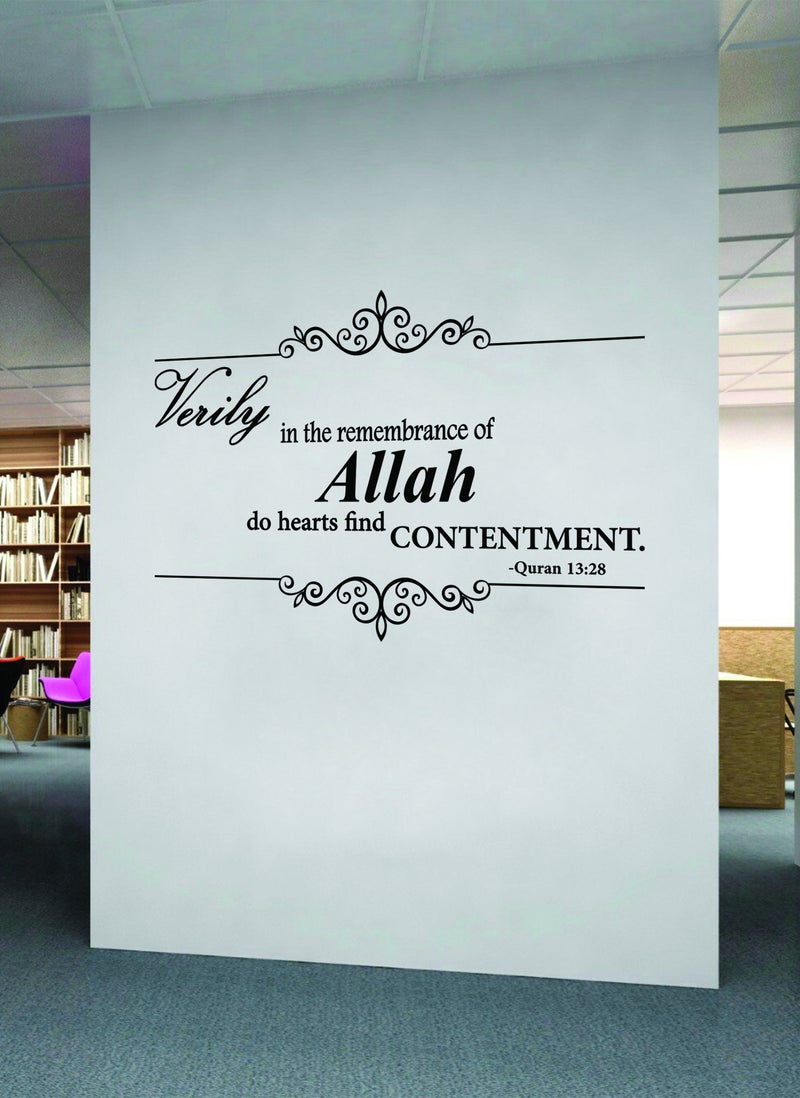 Verily
in the remembrance of
Allah
do hearts find CONTENTMENT.
-Quran 13:28